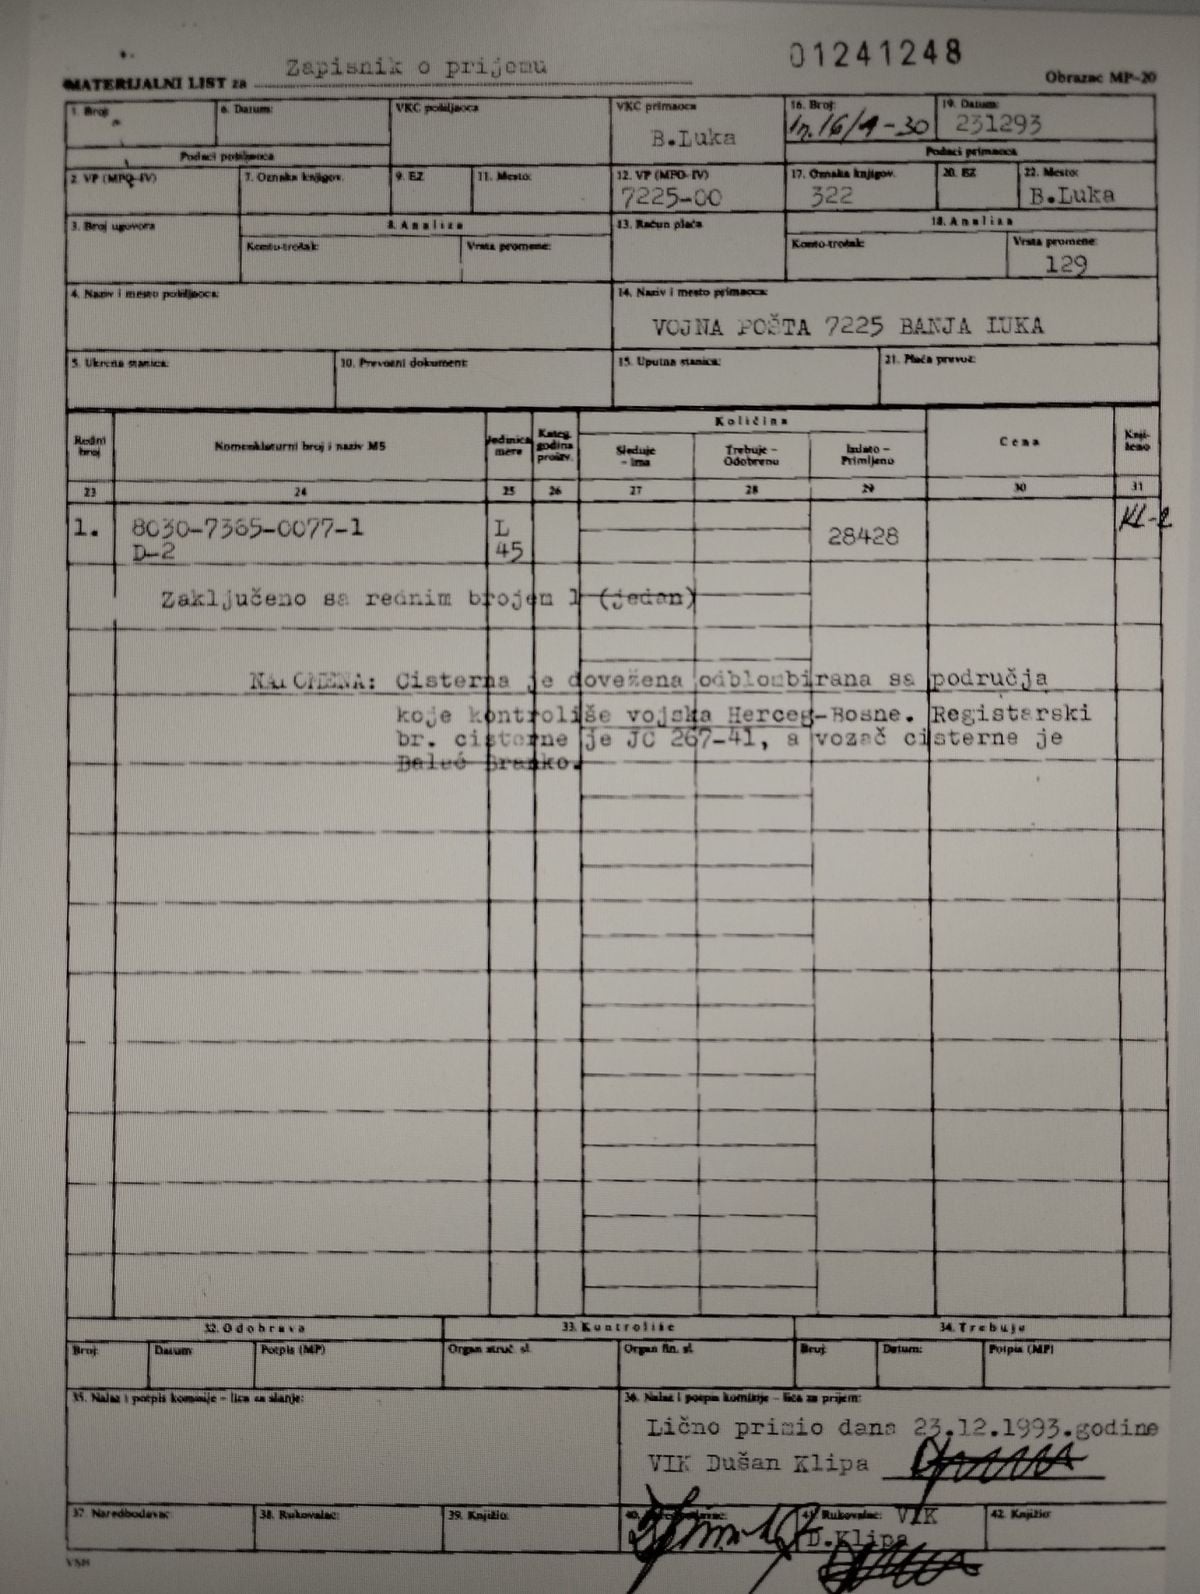 Zapisnik o prijemu
01241248
MATERIJALNI LIST za
Obrazac MP-20
1. Broj:
6. Datum:
VKC pošiljaoca
VKC primaoca
B.Luka
16. Broj:
19. Datum:
231293
Podaci pošiljaoca
Podaci primaoca
2. VP (MPO-IV)
7. Oznaka knjigov.
9. EZ
11. Mesto:
12. VP (MPO-IV)
7225-00
17. Oznaka knjigov.
322
20. EZ
22. Mesto:
B.Luka
3. Broj ugovora
8. Analiza
Konto-trošak:
Vrsta promene:
13. Račun plaća
18. Analiza
Konto-trošak:
Vrsta promene:
129
4. Naziv i mesto pošiljaoca:
14. Naziv i mesto primaoca:
VOJNA POŠTA 7225 BANJA LUKA
5. Ukrcna stanica:
10. Prevozni dokument:
15. Uputna stanica:
21. Plaća prevoz:
Redni broj
Nomenklaturni broj i naziv MS
Jedinica mere
Kateg. godina proizv.
Količina
Sleduje - ima
Trebuje - Odobreno
Izdato - Primljeno
Cena
Knji-ženo
23 24 25 26 27 28 29 30 31
1. 8030-7365-0077-1 L 28428 KL-2
D-2 45
Zaključeno sa rednim brojem 1 (jedan)
NAPOMENA: Cisterna je dovežena odbloubirana sa područja
koje kontroliše vojska Herceg-Bosne. Registarski
br. cisterne je JC 267-41, a vozač cisterne je
Baleć Branko.
32. Odobrava
33. Kontroliše
34. Trebuje
Broj:
Datum:
Potpis (MP)
Organ struč. sl.
Organ fin. sl.
Broj:
Datum:
Potpis (MP)
35. Nalaz i potpis komisije - lica za slanje:
36. Nalaz i potpis komisije - lica za prijem:
Lično primio dana 23.12.1993.godine
VIK Dušan Klipa
37. Naredbodavac:
38. Rukovalac:
39. Knjižio:
40.
41. Rukovalac: VIK
D.Klipa
42. Knjižio: